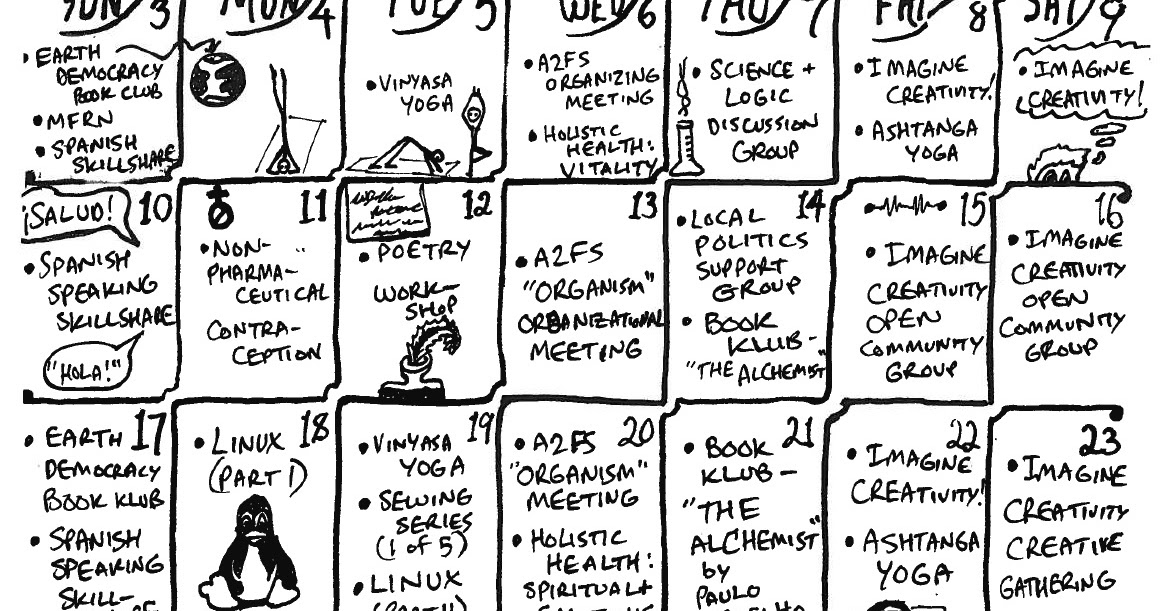 SUN 3
MON 4
TUE 5
WED 6
THU 7
FRI 8
SAT 9
• EARTH
DEMOCRACY
BOOK CLUB
• MFRN
• SPANISH
SKILLSHARE
• VINYASA
YOGA
• A2FS
ORGANIZING
MEETING
• HOLISTIC
HEALTH:
VITALITY
• SCIENCE +
LOGIC
DISCUSSION
GROUP
• IMAGINE
CREATIVITY!
• ASHTANGA
YOGA
• IMAGINE
CREATIVITY!
¡SALUD! 10
• SPANISH
SPEAKING
SKILLSHARE
"HOLA!"
11
• NON-
PHARMA-
CEUTICAL
CONTRA-
CEPTION
12
• POETRY
WORK-
SHOP
13
• A2FS
"ORGANISM"
ORGANIZATIONAL
MEETING
14
• LOCAL
POLITICS
SUPPORT
GROUP
• BOOK
KLUB-
"THE ALCHEMIST"
15
• IMAGINE
CREATIVITY
OPEN
COMMUNITY
GROUP
16
• IMAGINE
CREATIVITY
OPEN
COMMUNITY
GROUP
• EARTH 17
DEMOCRACY
BOOK KLUB
• SPANISH
SPEAKING
SKILL-
• LINUX 18
(PART 1)
• VINYASA 19
YOGA
• SEWING
SERIES
(1 of 5)
• LINUX
• A2FS 20
"ORGANISM"
MEETING
• HOLISTIC
HEALTH:
SPIRITUAL+
• BOOK 21
KLUB-
"THE
ALCHEMIST"
by
PAULO
22
• IMAGINE
CREATIVITY!
• ASHTANGA
YOGA
23
• IMAGINE
CREATIVITY
CREATIVE
GATHERING